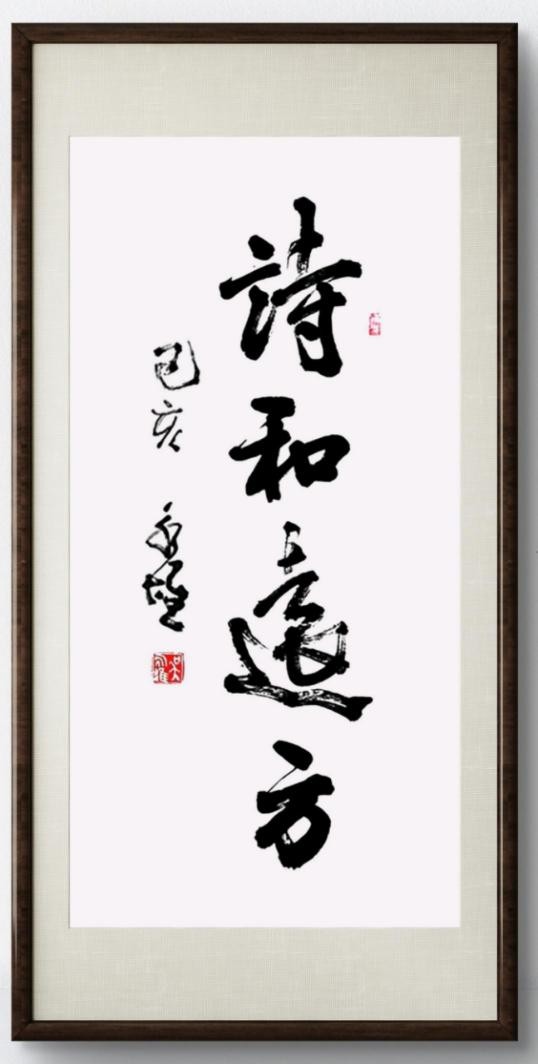 詩和遠方
己亥